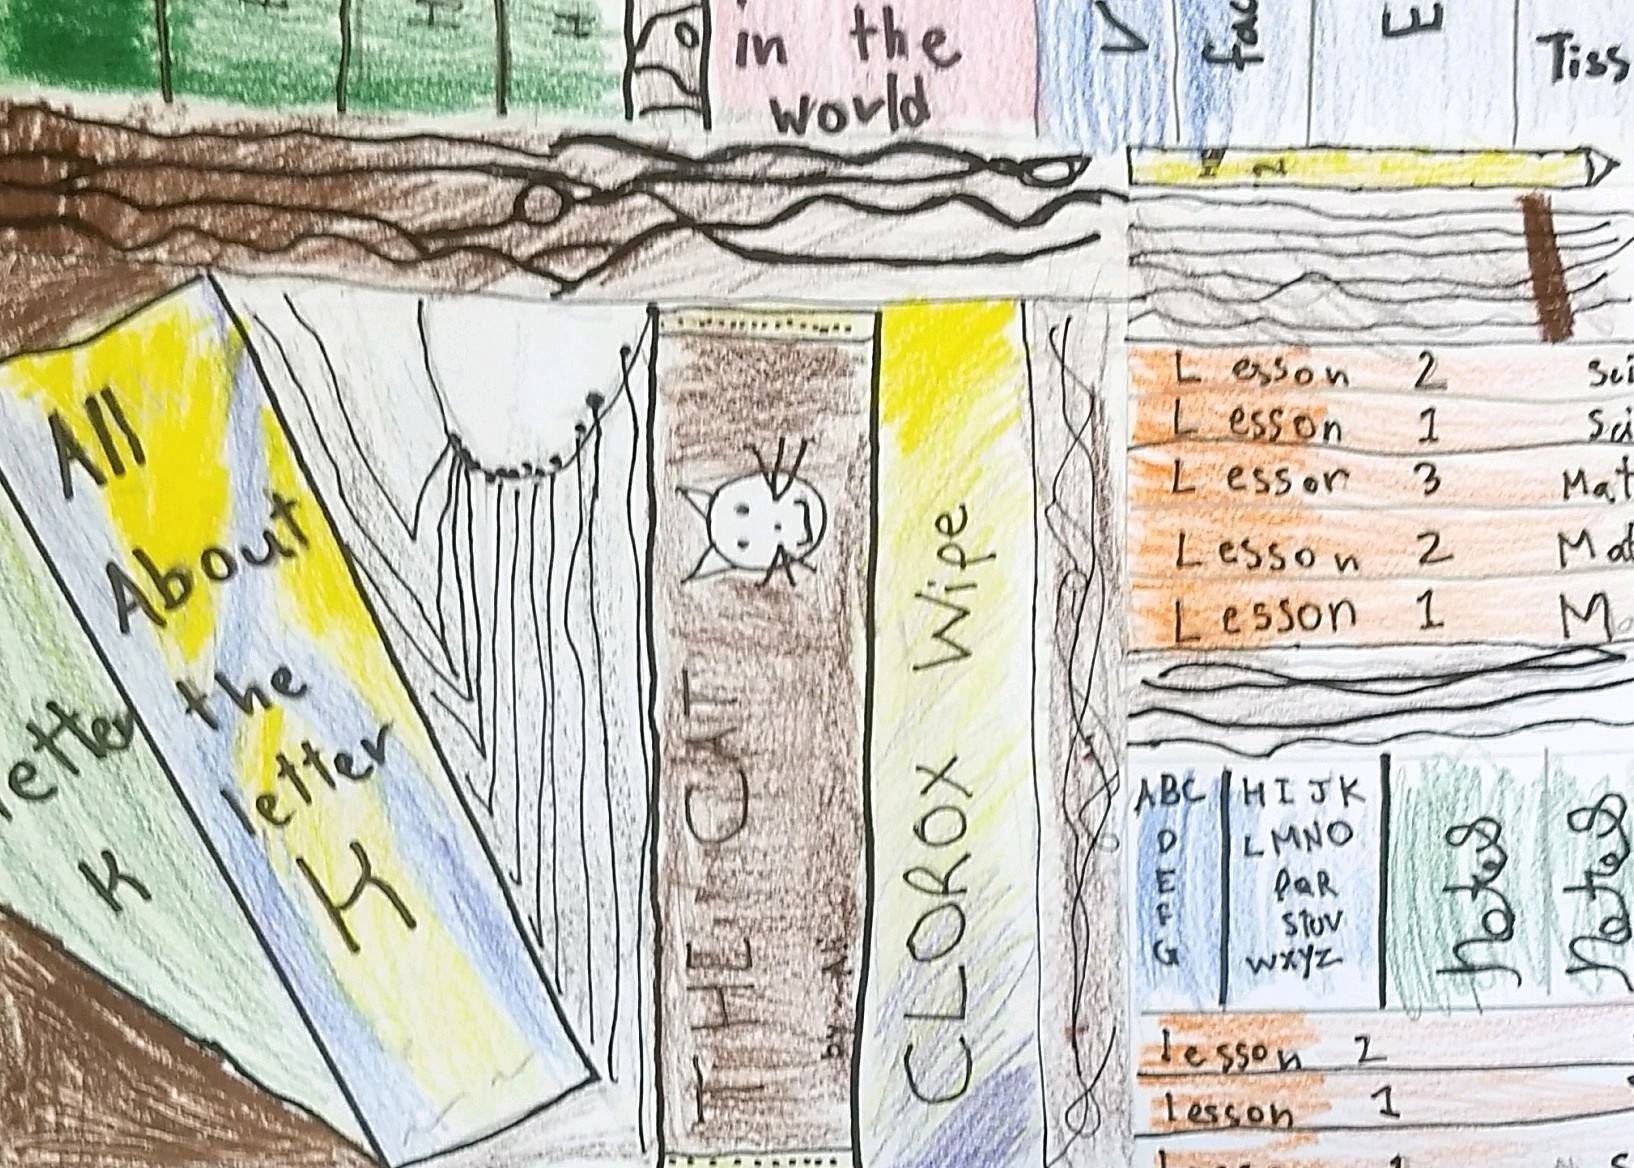 in the
world
V
fac
E
Tiss
2
All
About
the
letter
K
letter
K
THE CAT
CLOROX Wipe
Lesson 2 Sci
Lesson 1 Sci
Lesson 3 Mat
Lesson 2 Mat
Lesson 1 M
ABC
D
E
F
G
HIJK
LMNO
PQR
STUV
WXYZ
notes
notes
lesson 2
lesson 1